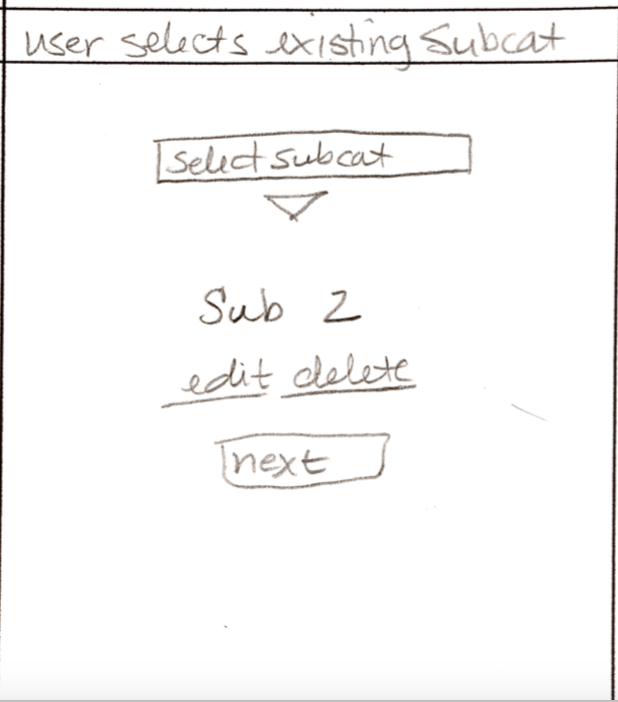 user selects existing Subcat
select subcat
Sub 2
edit delete
next